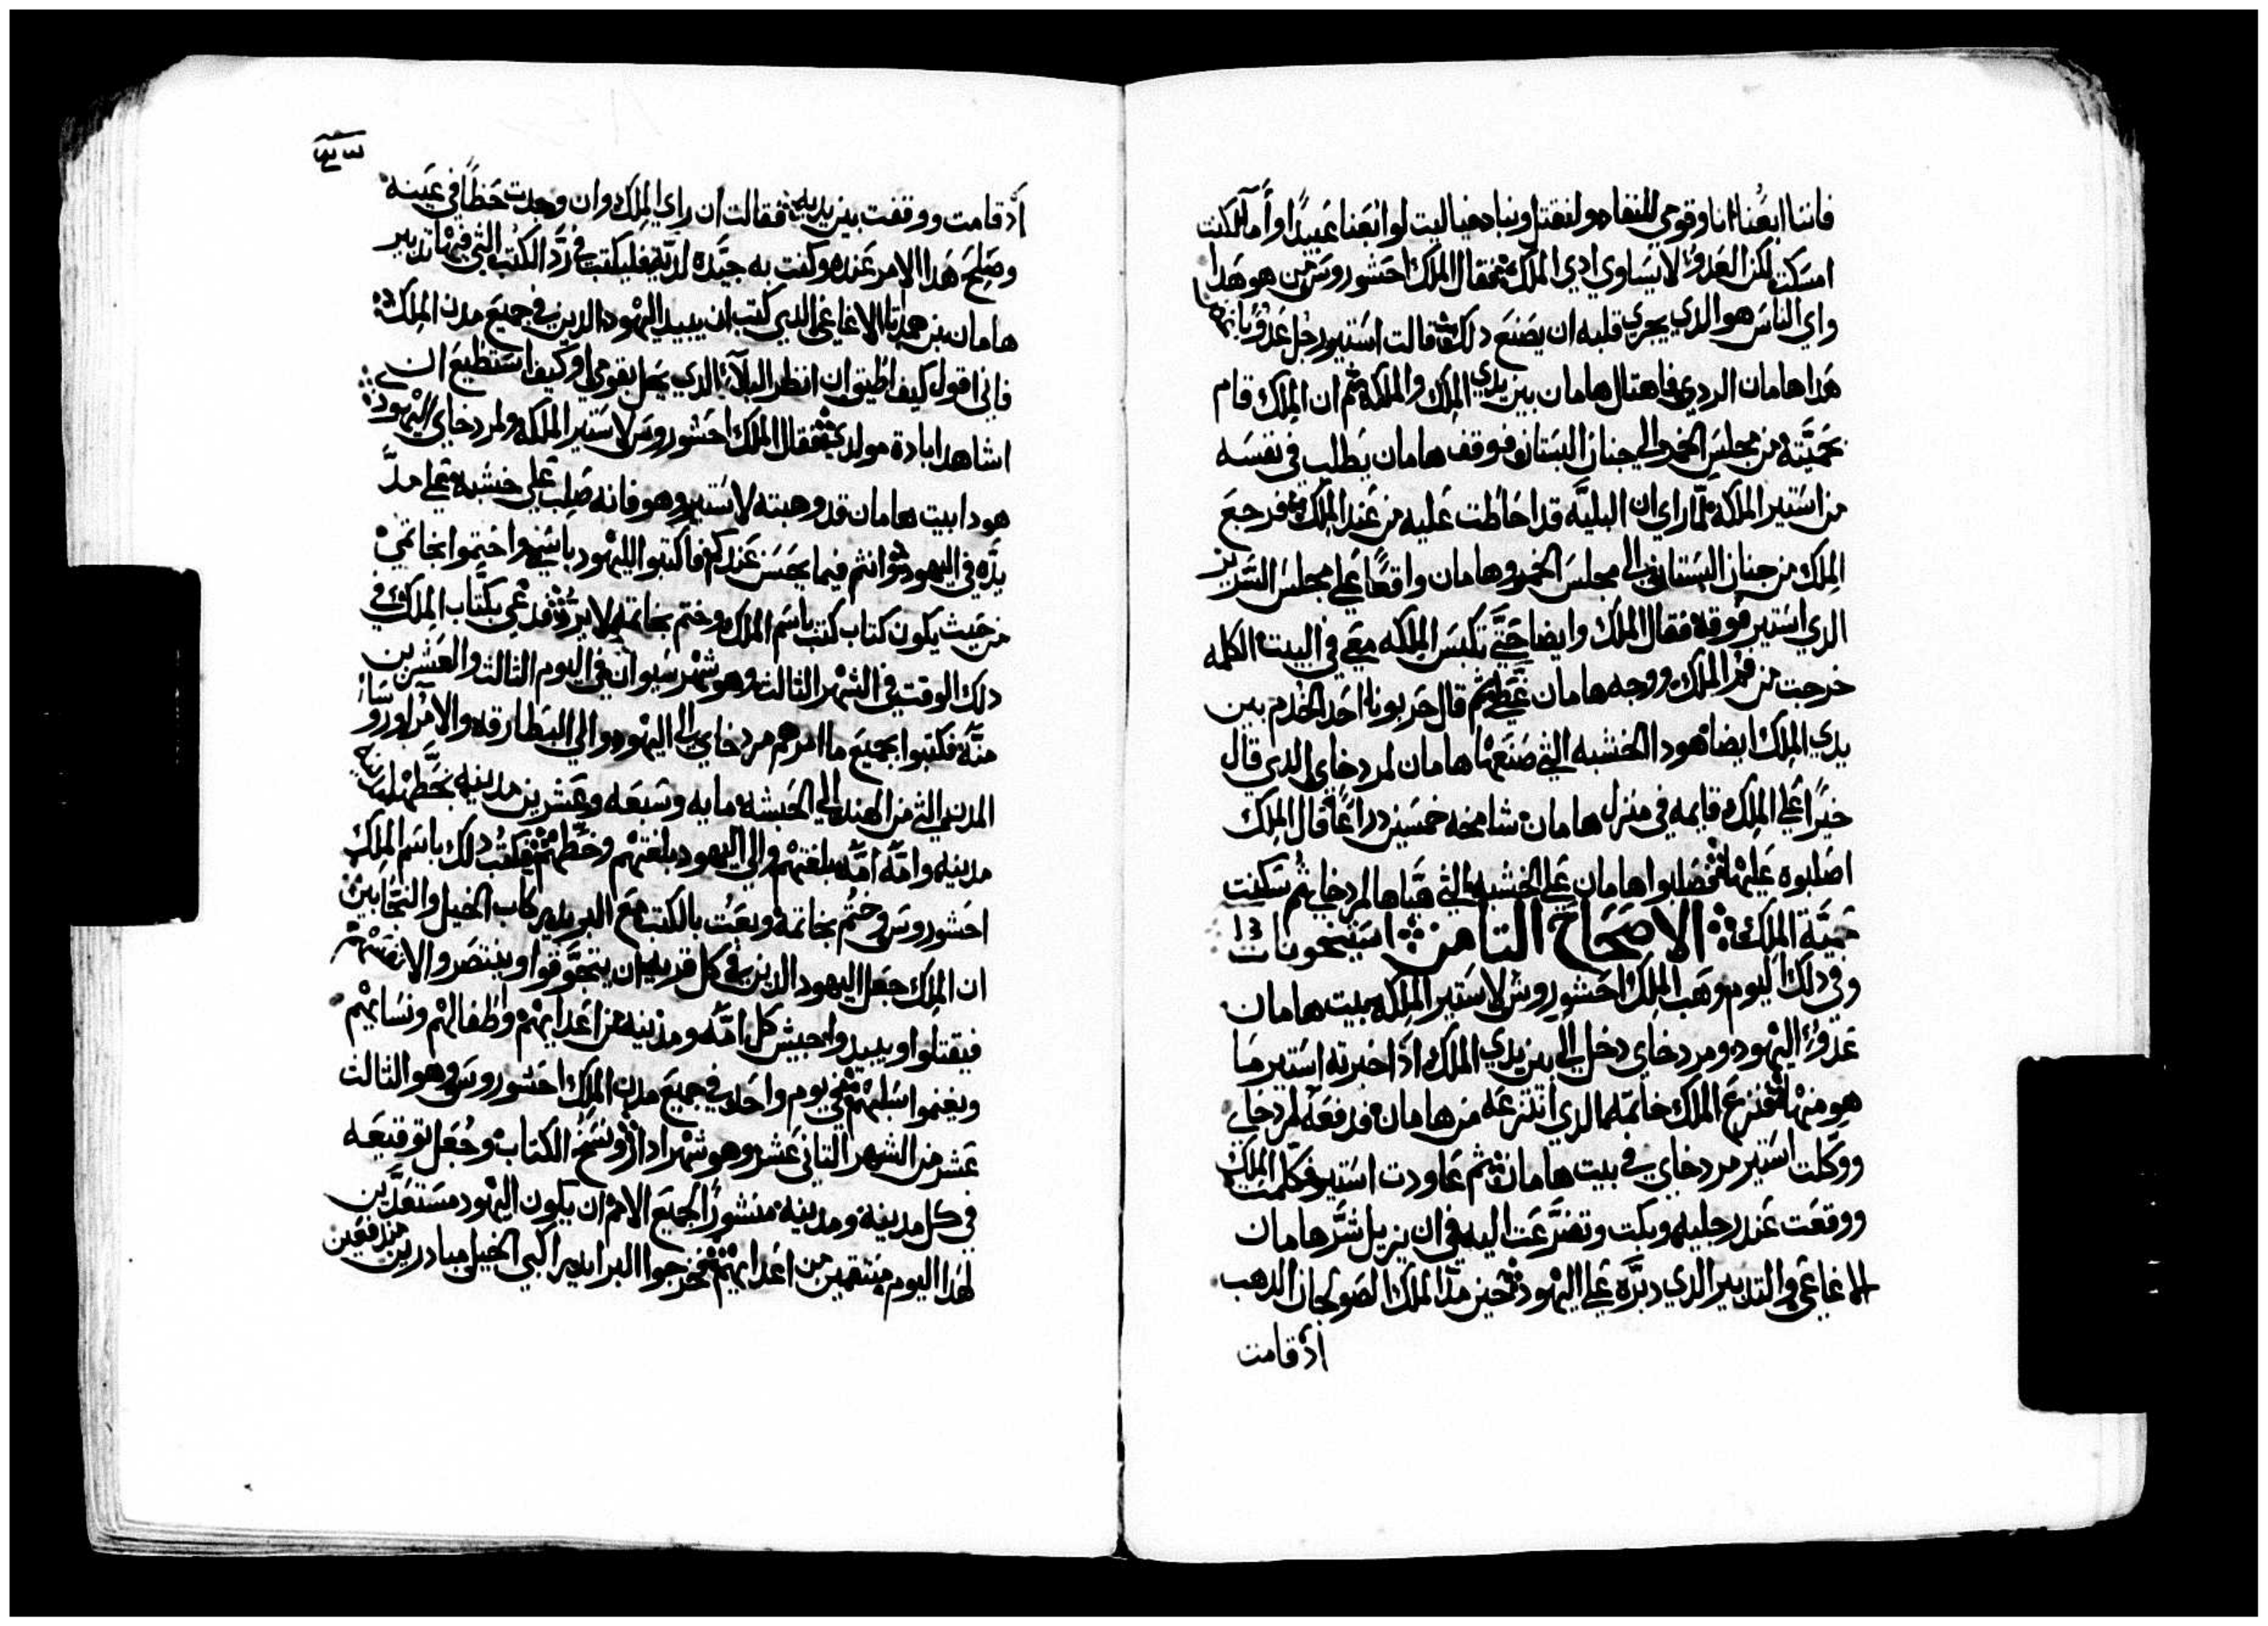 فاننا ابعنا انا وقومي للنفاد ولنقتل ونباد فياليت لو انبعنا عبيدًا وأمآ لكنت
امسكت لكن العدو لا يساوي ادي الملك فقال الملك احشوروس من هو هدا
واي الناس هو الدي يجري قلبه ان يصنع دلك قالت استير رجل عدو باغض
هدا هامان الردي فاهتال هامان بين يدي الملك والملكه ثم ان الملك قام
بحميته من مجلس الخمر الي جنان البستان فوقف هامان يطلب في نفسه
من استير الملكه لما راي ان البليه قد احاطت عليه من عند الملك فرجع
الملك من جنان البستان الي مجلس الخمر وهامان واقعًا علي مجلس السرير
الدي استير فوقه فقال الملك وايضا حتي تكبس الملكه معي في البيت الكلمه
خرجت من فم الملك ووجه هامان غطي ثم قال حربونا احد الخدم بين
يدي الملك ايضا هودا الخشبه التي صنعها هامان لمردخاي الدي قال
خيرًا علي الملك قايمه في منزل هامان شامخه خمسين دراعًا قال الملك
اصلبوه عليها فصلبوا هامان علي الخشبه التي هياها لمردخاي ثم سكنت
حمية الملك الاصحاح التامن استيخونات 13
وفي دلك اليوم وهب الملك احشوروش لاستير الملكه بيت هامان
عدو اليهود ومردخاي دخل الي بين يدي الملك اذ اخبرته استير ما
هو منها فنزع الملك خاتمه الدي انتزعه من هامان فدفعه لمردخاي
ووكلت استير مردخاي في بيت هامان ثم عاودت استير فكلمت الملك
ووقعت عند رجليه وبكت وتضرعت اليه في ان يزيل شر هامان
الاغاغي والتدبير الدي دبره علي اليهود فحين مدا الملك الصولجان الدهب
اذ قامت
اذ قامت ووقفت بين يديه فقالت ان راي الملك وان وجدت حظًا في عينه
وصلح هدا الامر عنده وكنت به جيده لديه فليكتب في رد الكتب التي فيها تدبير
هامان بن همداتا الاغاغي الدي كتب ان يبيد اليهود الدين في جميع مدن الملك
فاني اقول كيف اطيق ان انظر البلآء الدي يحل بقومي او كيف استطيع ان
اشاهد ابادة مولدي فقال الملك احشوروس لاستير الملكه ولمردخاي اليهودي
هودا بيت هامان قد وهبته لاستير وهو فانه صلب علي خشبه علي مد
يده في اليهود وانتم فيما يحسن عندكم فاكتبوا لليهود باسمي واختموا بخاتمي
من حيث يكون كتاب كتب باسم الملك وختم بخاتمه لا يرد فدعي بكتاب الملك في
دلك الوقت في الشهر التالت وهو شهر سيوان في اليوم التالت والعشرين
منه فكتبوا بجميع ما امرهم مردخاي الي اليهود والي البطارقه والامرا وروسآء
المدن التي من الهند الي الحبشه مايه وسبعه وعشرين مدينه بخطها مدينه
مدينه وامه امه بلغتهم والي اليهود بلغتهم وخطهم فكتب دلك باسم الملك
احشوروس وختم بخاتمه وبعت بالكتب مع البريديه ركاب الخيل والنجابين
ان الملك جعل اليهود الدين في كل قريه ان يتجوقوا وينتصروا لانفسهم
فيقتلوا ويبيدوا جيش كل امه ومدينه من اعدايهم واطفالهم ونسايهم
ويغنموا سلبهم في يوم واحد في جميع مدن الملك احشوروس وهو التالت
عشر من الشهر التاني عشر وهو شهر ادار ونسخ الكتاب وجعل توقيعه
في كل مدينه ومدينه منشورًا لجميع الامم ان يكون اليهود مستعدين
لهدا اليوم منتقمين من اعدايهم فخرجوا البرايديه راكبي الخيل مبادرين مندفعين